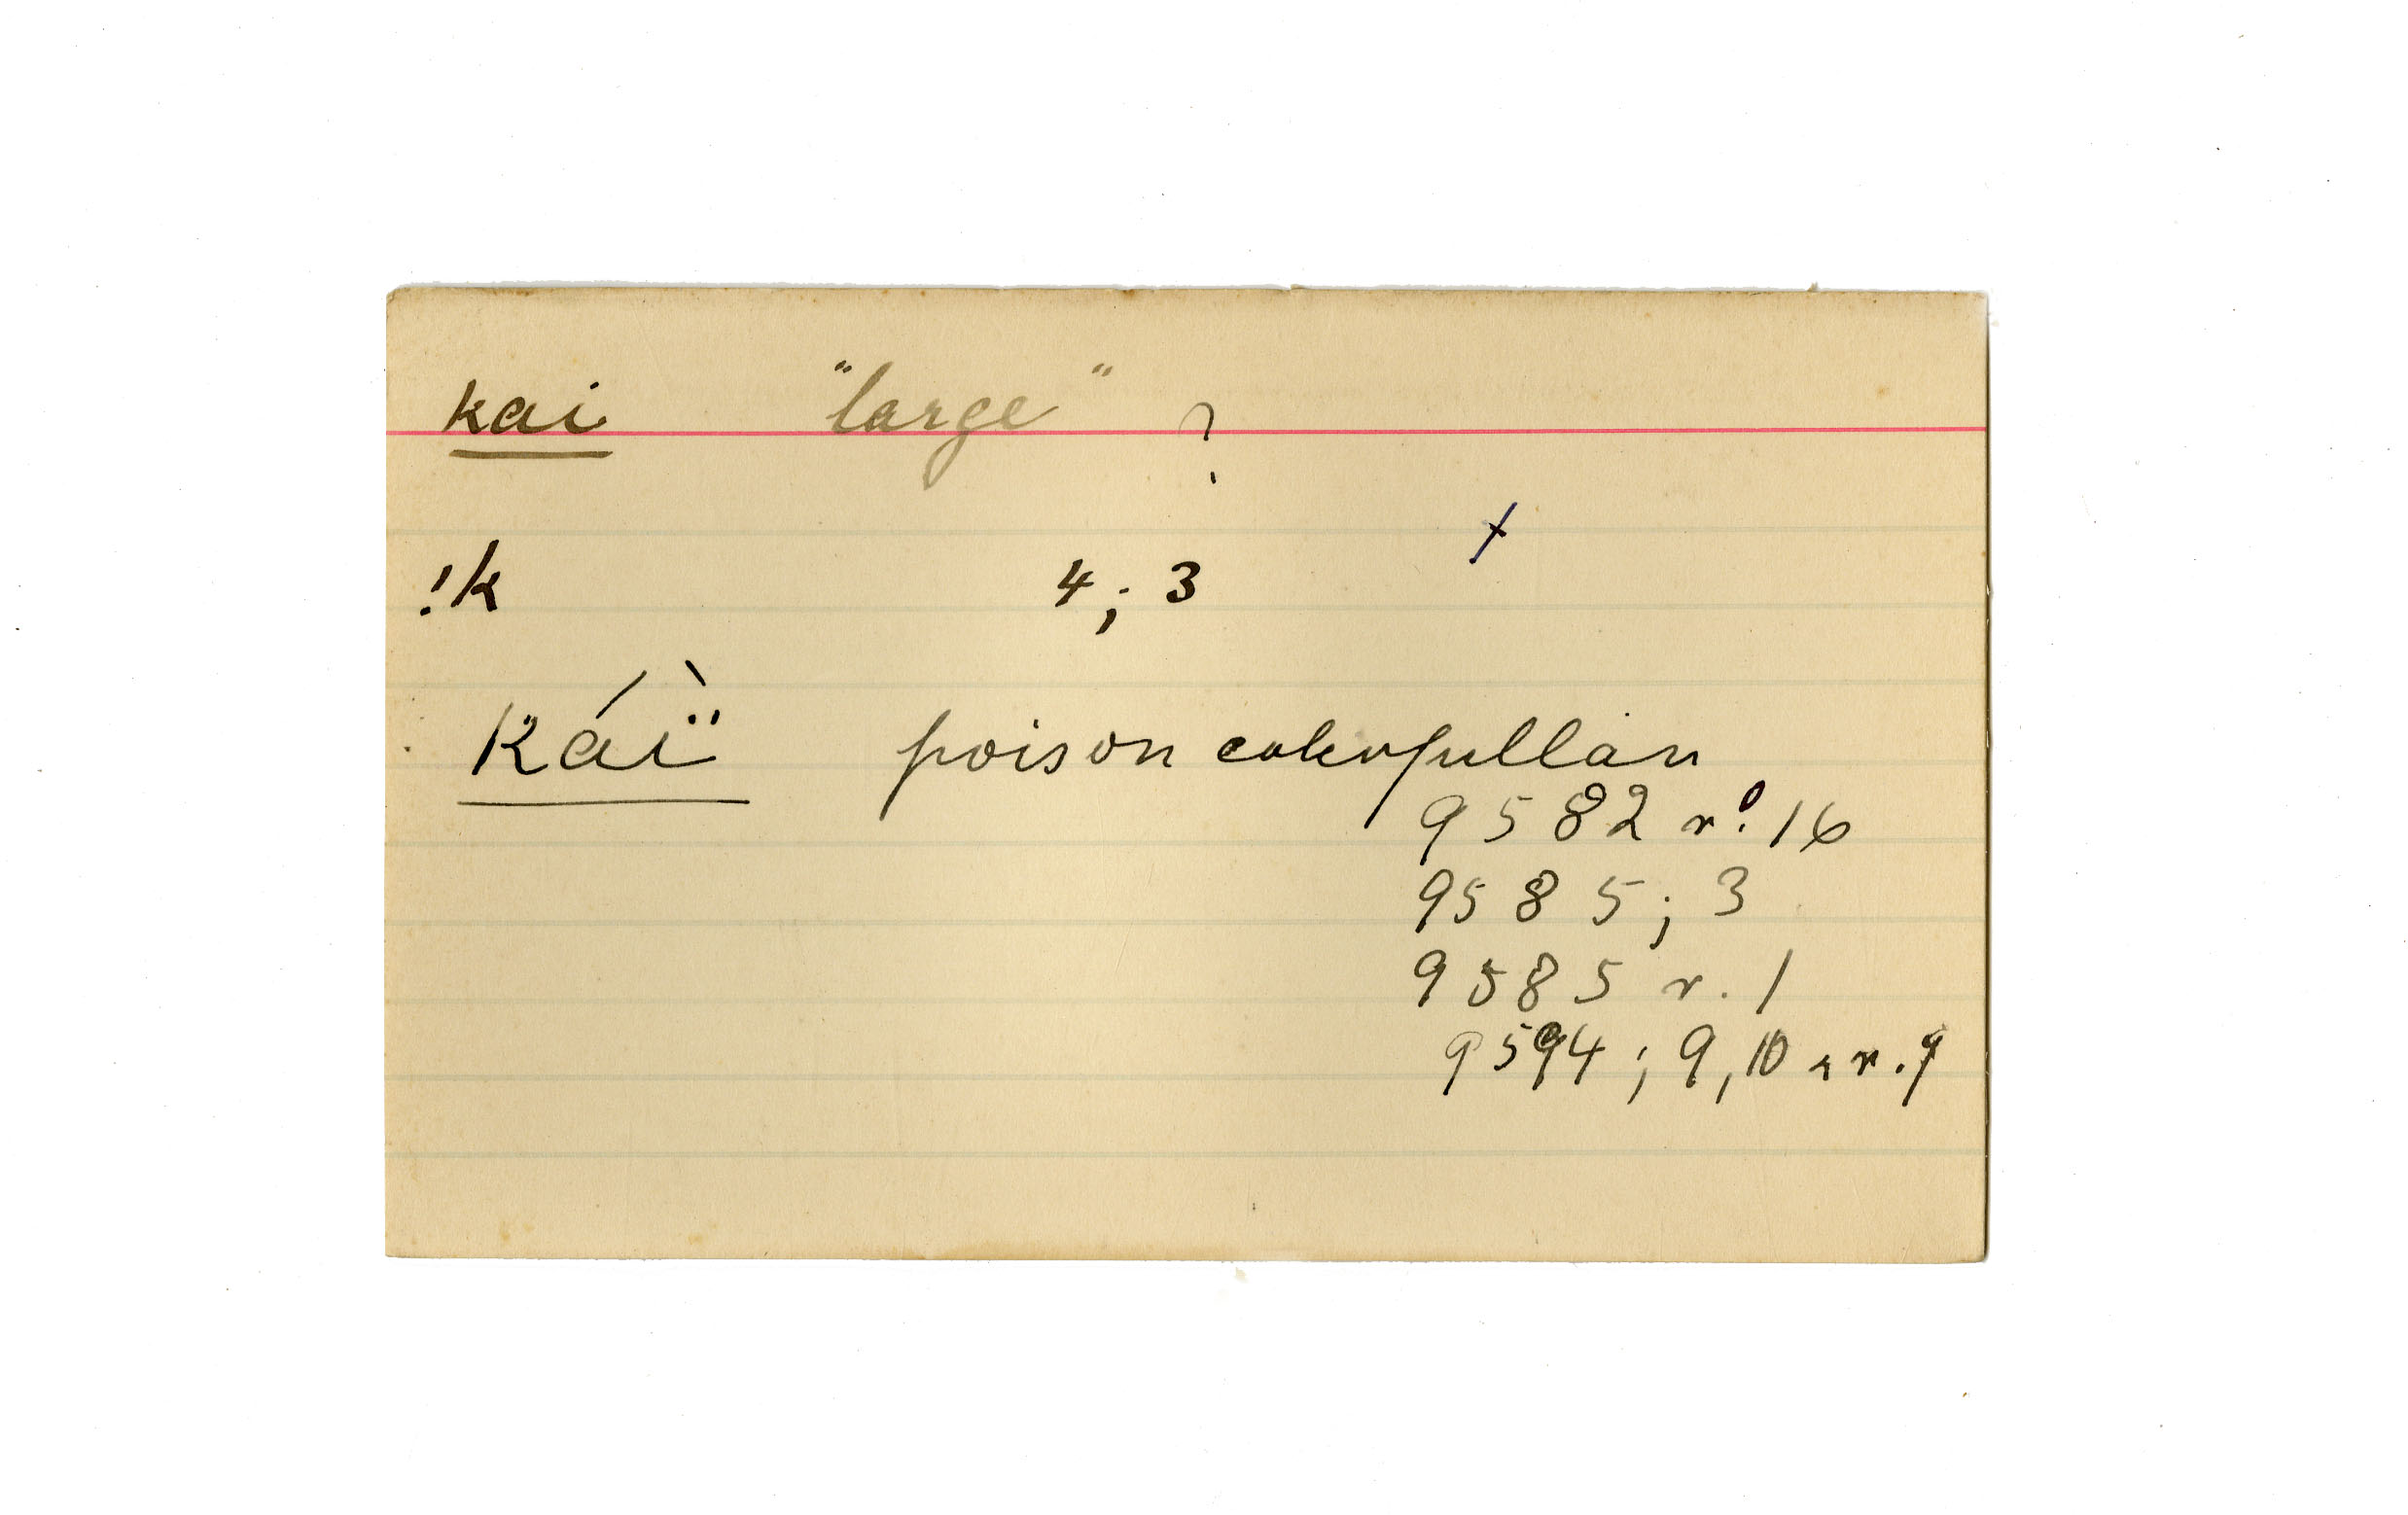 kai "large" ?
!k 4 ; 3 +
káï̀ poison caterpullar
9582 r⁰. 16
9585 ; 3
9585 r. 1
9594 ; 9, 10 & r. 9